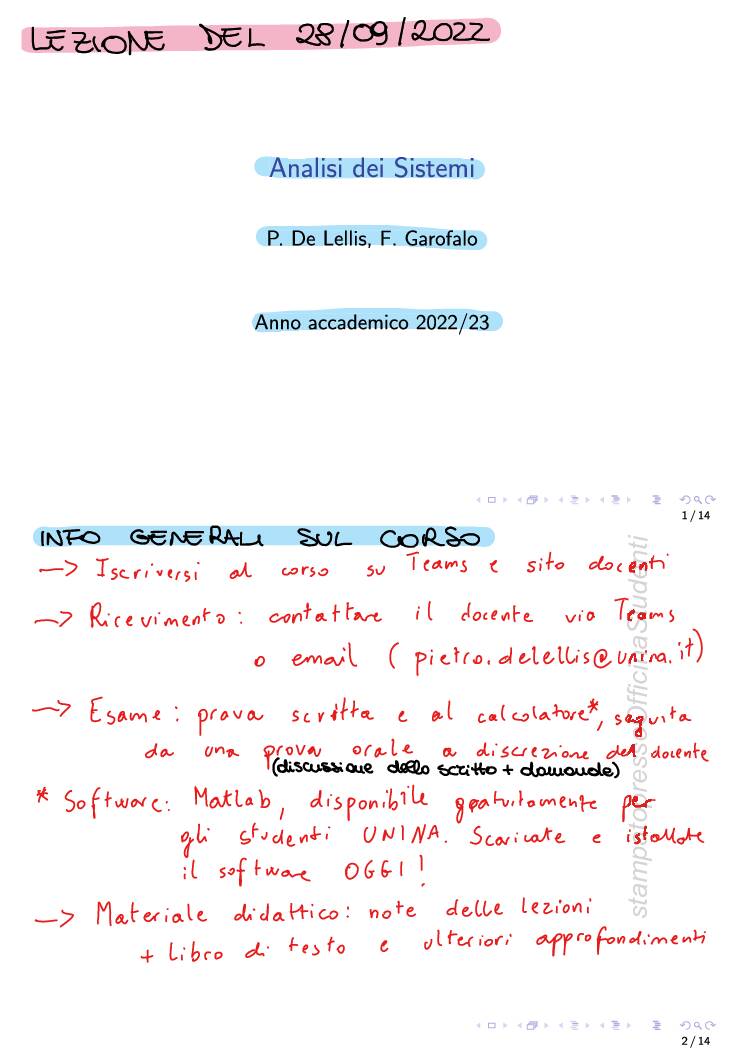 LEZIONE DEL 28/09/2022
Analisi dei Sistemi
P. De Lellis, F. Garofalo
Anno accademico 2022/23
1 / 14
INFO GENERALI SUL CORSO
—> Iscriversi al corso su Teams e sito docenti
—> Ricevimento: contattare il docente via Teams
o email (pietro.delellis@unina.it)
—> Esame: prova scritta e al calcolatore*, seguita
da una prova orale a discrezione del docente
(discussione dello scritto + domande)
* Software: Matlab, disponibile gratuitamente per
gli studenti UNINA. Scaricate e istallate
il software OGGI!
—> Materiale didattico: note delle lezioni
+ libro di testo e ulteriori approfondimenti
stampatopressoOfficinaStudenti
2 / 14